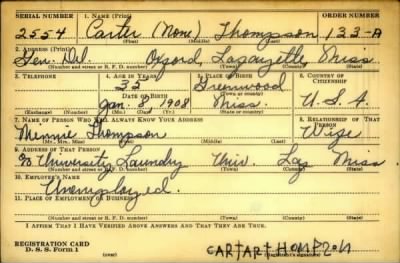 SERIAL NUMBER 1. NAME (Print) ORDER NUMBER
2554 Carter (None) Thompson 133-A
(First) (Middle) (Last)
2. ADDRESS (Print)
Gen. Del. Oxford, Lafayette Miss.
(Number and street or R. F. D. number) (Town) (County) (State)
3. TELEPHONE 4. AGE IN YEARS 5. PLACE OF BIRTH 6. COUNTRY OF CITIZENSHIP
32 Greenwood
DATE OF BIRTH (Town or county)
Jan. 8, 1908 Miss. U.S.A.
(Exchange) (Number) (Mo.) (Day) (Yr.) (State or country)
7. NAME OF PERSON WHO WILL ALWAYS KNOW YOUR ADDRESS 8. RELATIONSHIP OF THAT PERSON
Minnie Thompson Wife
(Mr., Mrs., Miss) (First) (Middle) (Last)
9. ADDRESS OF THAT PERSON
% University Laundry Univ. Laf. Miss.
(Number and street or R. F. D. number) (Town) (County) (State)
10. EMPLOYER'S NAME
Unemployed.
11. PLACE OF EMPLOYMENT OR BUSINESS
(Number and street or R. F. D. number) (Town) (County) (State)
I AFFIRM THAT I HAVE VERIFIED ABOVE ANSWERS AND THAT THEY ARE TRUE.
REGISTRATION CARD
D. S. S. Form 1 (over) CARTARTHOMPZON
(Registrant's signature)